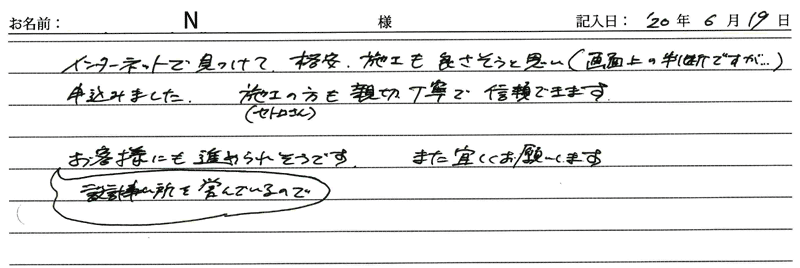 お名前： N 様 記入日： '20 年 6 月 19 日
インターネットで見つけて、格安、施工も良さそうと思い（画面上の判断ですが…）
申込みました。 施工の方も親切丁寧で信頼できます
(セトロさん)
お客様にも進められそうです。 また宜しくお願いします
設計事ム所を営んでいるので